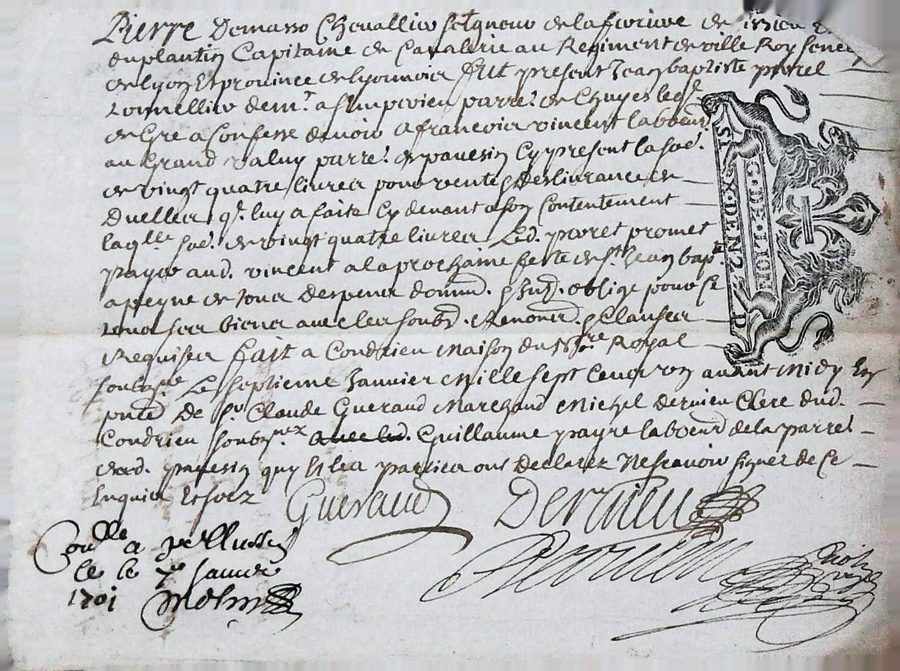 Pierre Demasso Chevallier seigneur de la furivve de
duplantin Capitaine de Cavalerie au Regiment de ville Roy senec
de lyon et province de lyonnois fut present Jean baptiste paret
tonnellier dem.t a parre. de Chuyes leq.l
de Gré a Confessé devoir a francois vincent laboeur
au Grand parre. de pavesin Cy present la so.e
de vingt quatre livres pour vente & deslivrance de
Duelles q.l luy a faite Cy devant a son Contentement
laq.lle so.e de vingt quatre livres led. paret promet
payer aud. vincent a la prochaine feste de st Jean bap.te
a peyne de tous despens oblige pour ce
tous ses biens avec les soub.n & Renon.n & Clauses
Requises fait a Condrieu Maison du no.re Royal
soubsig.ne Le septieme Janvier Mille sept Cent un avant Midy En
pnce De sr Claude Gueraud Marchand Michel Dervieu Clerc dud.
Condrieu soubsig.nez avec led. Guillaume payre laboeur de la parre
dud. pavesin quy & les parties ont Declarez Ne scavoir signer de ce
Enquis
G. DE LION
SIX DEN
Gueraud Dervieu
Con.lle a pellussin
le 7e Janvier
1701